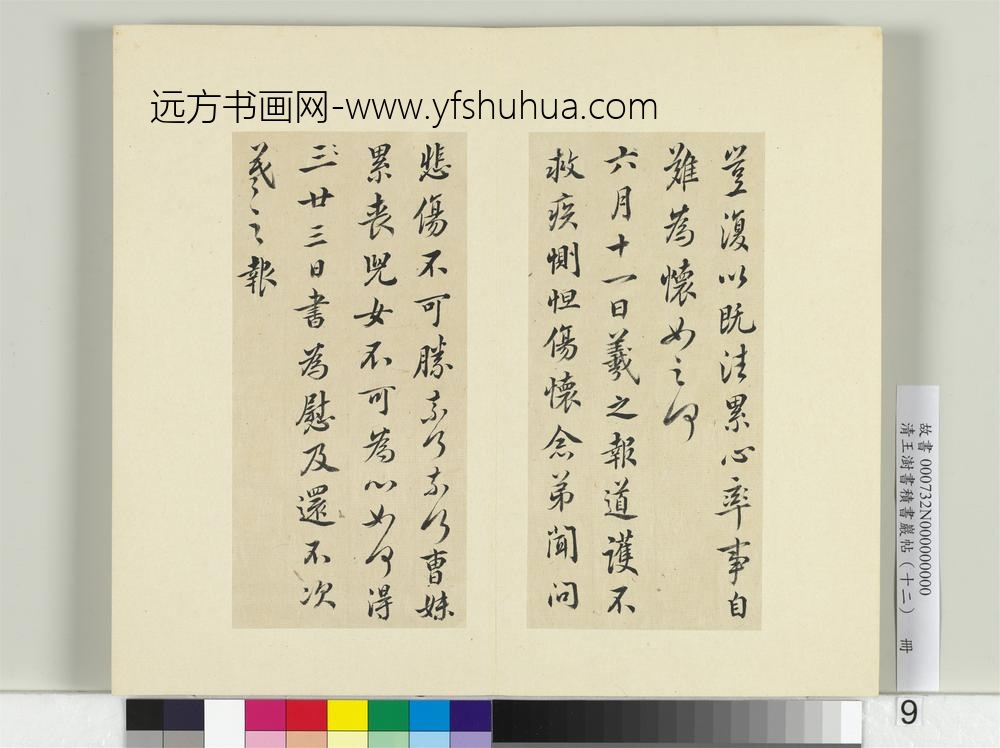 远方书画网-www.yfshuhua.com
豈復以既往累心率事自
難為懷如之何
六月十一日羲之報道護不
救疾惻怛傷懷念弟聞問
悲傷不可勝奈何奈何曹妹
累喪兒女不可為心如何得
三廿三日書為慰及還不次
羲之報
故書 000732N000000000
清王澍書積書巖帖(十二) 冊
9